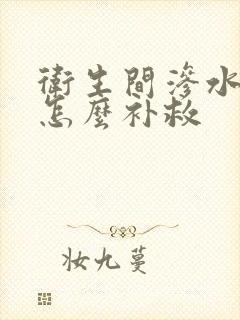 衛生間滲水
怎麼补救
妝九蔓